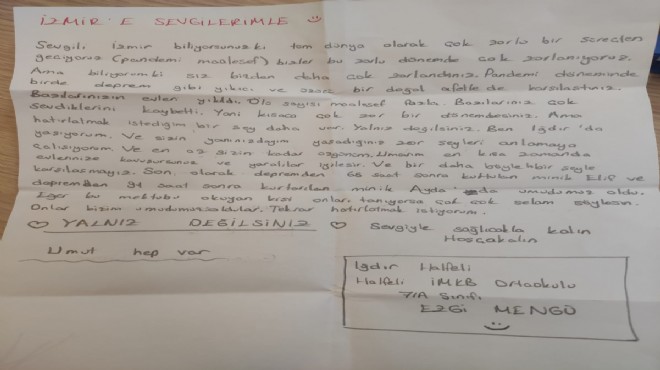 İZMİR'E SEVGİLERİMLE
Sevgili İzmir biliyorsunuz ki tüm dünya olarak çok zorlu bir süreçten
geçiyoruz (pandemi maalesef) bizler bu zorlu dönemde çok zorlanıyoruz.
Ama biliyorum ki siz bizden daha çok zorlandınız. Pandemi döneminde
birde deprem gibi yıkıcı ve bir doğal afetle de karşılaştınız.
Bazılarınızın evleri yıkıldı. Ölü sayısı maalesef fazla. Bazılarınız çok
sevdiklerini kaybetti. Yani kısaca çok zor bir dönemdesiniz. Ama
hatırlatmak istediğim bir şey daha var. Yalnız değilsiniz. Ben Iğdır'da
yaşıyorum. Ve sizin yaşadığınız zor şeyleri anlamaya
çalışıyorum. Ve en az sizin kadar üzgünüm. Umarım en kısa zamanda
evlerinize kavuşursunuz ve yaralılar iyileşir. Ve bir daha böyle bir şeyle
karşılaşmayız. Son olarak depremden 65 saat sonra kurtulan minik Elif ve
depremden 91 saat sonra kurtarılan minik Ayda umudumuz oldu.
Eğer bu mektubu okuyan kişi onları tanıyorsa çok çok selam söylesin.
Onlar bizim umudumuz oldular. Tekrar hatırlatmak istiyorum.
YALNIZ DEĞİLSİNİZ
Sevgiyle sağlıcakla kalın
Hoşçakalın
Umut hep var
Iğdır Halfeli
Halfeli İMKB Ortaokulu
7/A Sınıfı
EZGİ MENGÜ